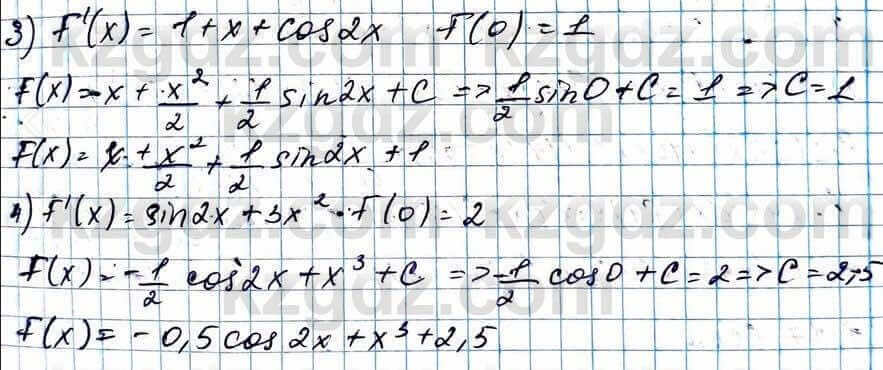 3) F'(x) = 1 + x + cos2x F(0) = 1
F(x) = x + x²/2 + 1/2 sin2x + C => 1/2 sin0 + C = 1 => C = 1
F(x) = x + x²/2 + 1/2 sin2x + 1
4) F'(x) = sin2x + 3x² · F(0) = 2
F(x) = -1/2 cos2x + x³ + C => -1/2 cos0 + C = 2 => C = 2,5
F(x) = -0,5cos2x + x³ + 2,5